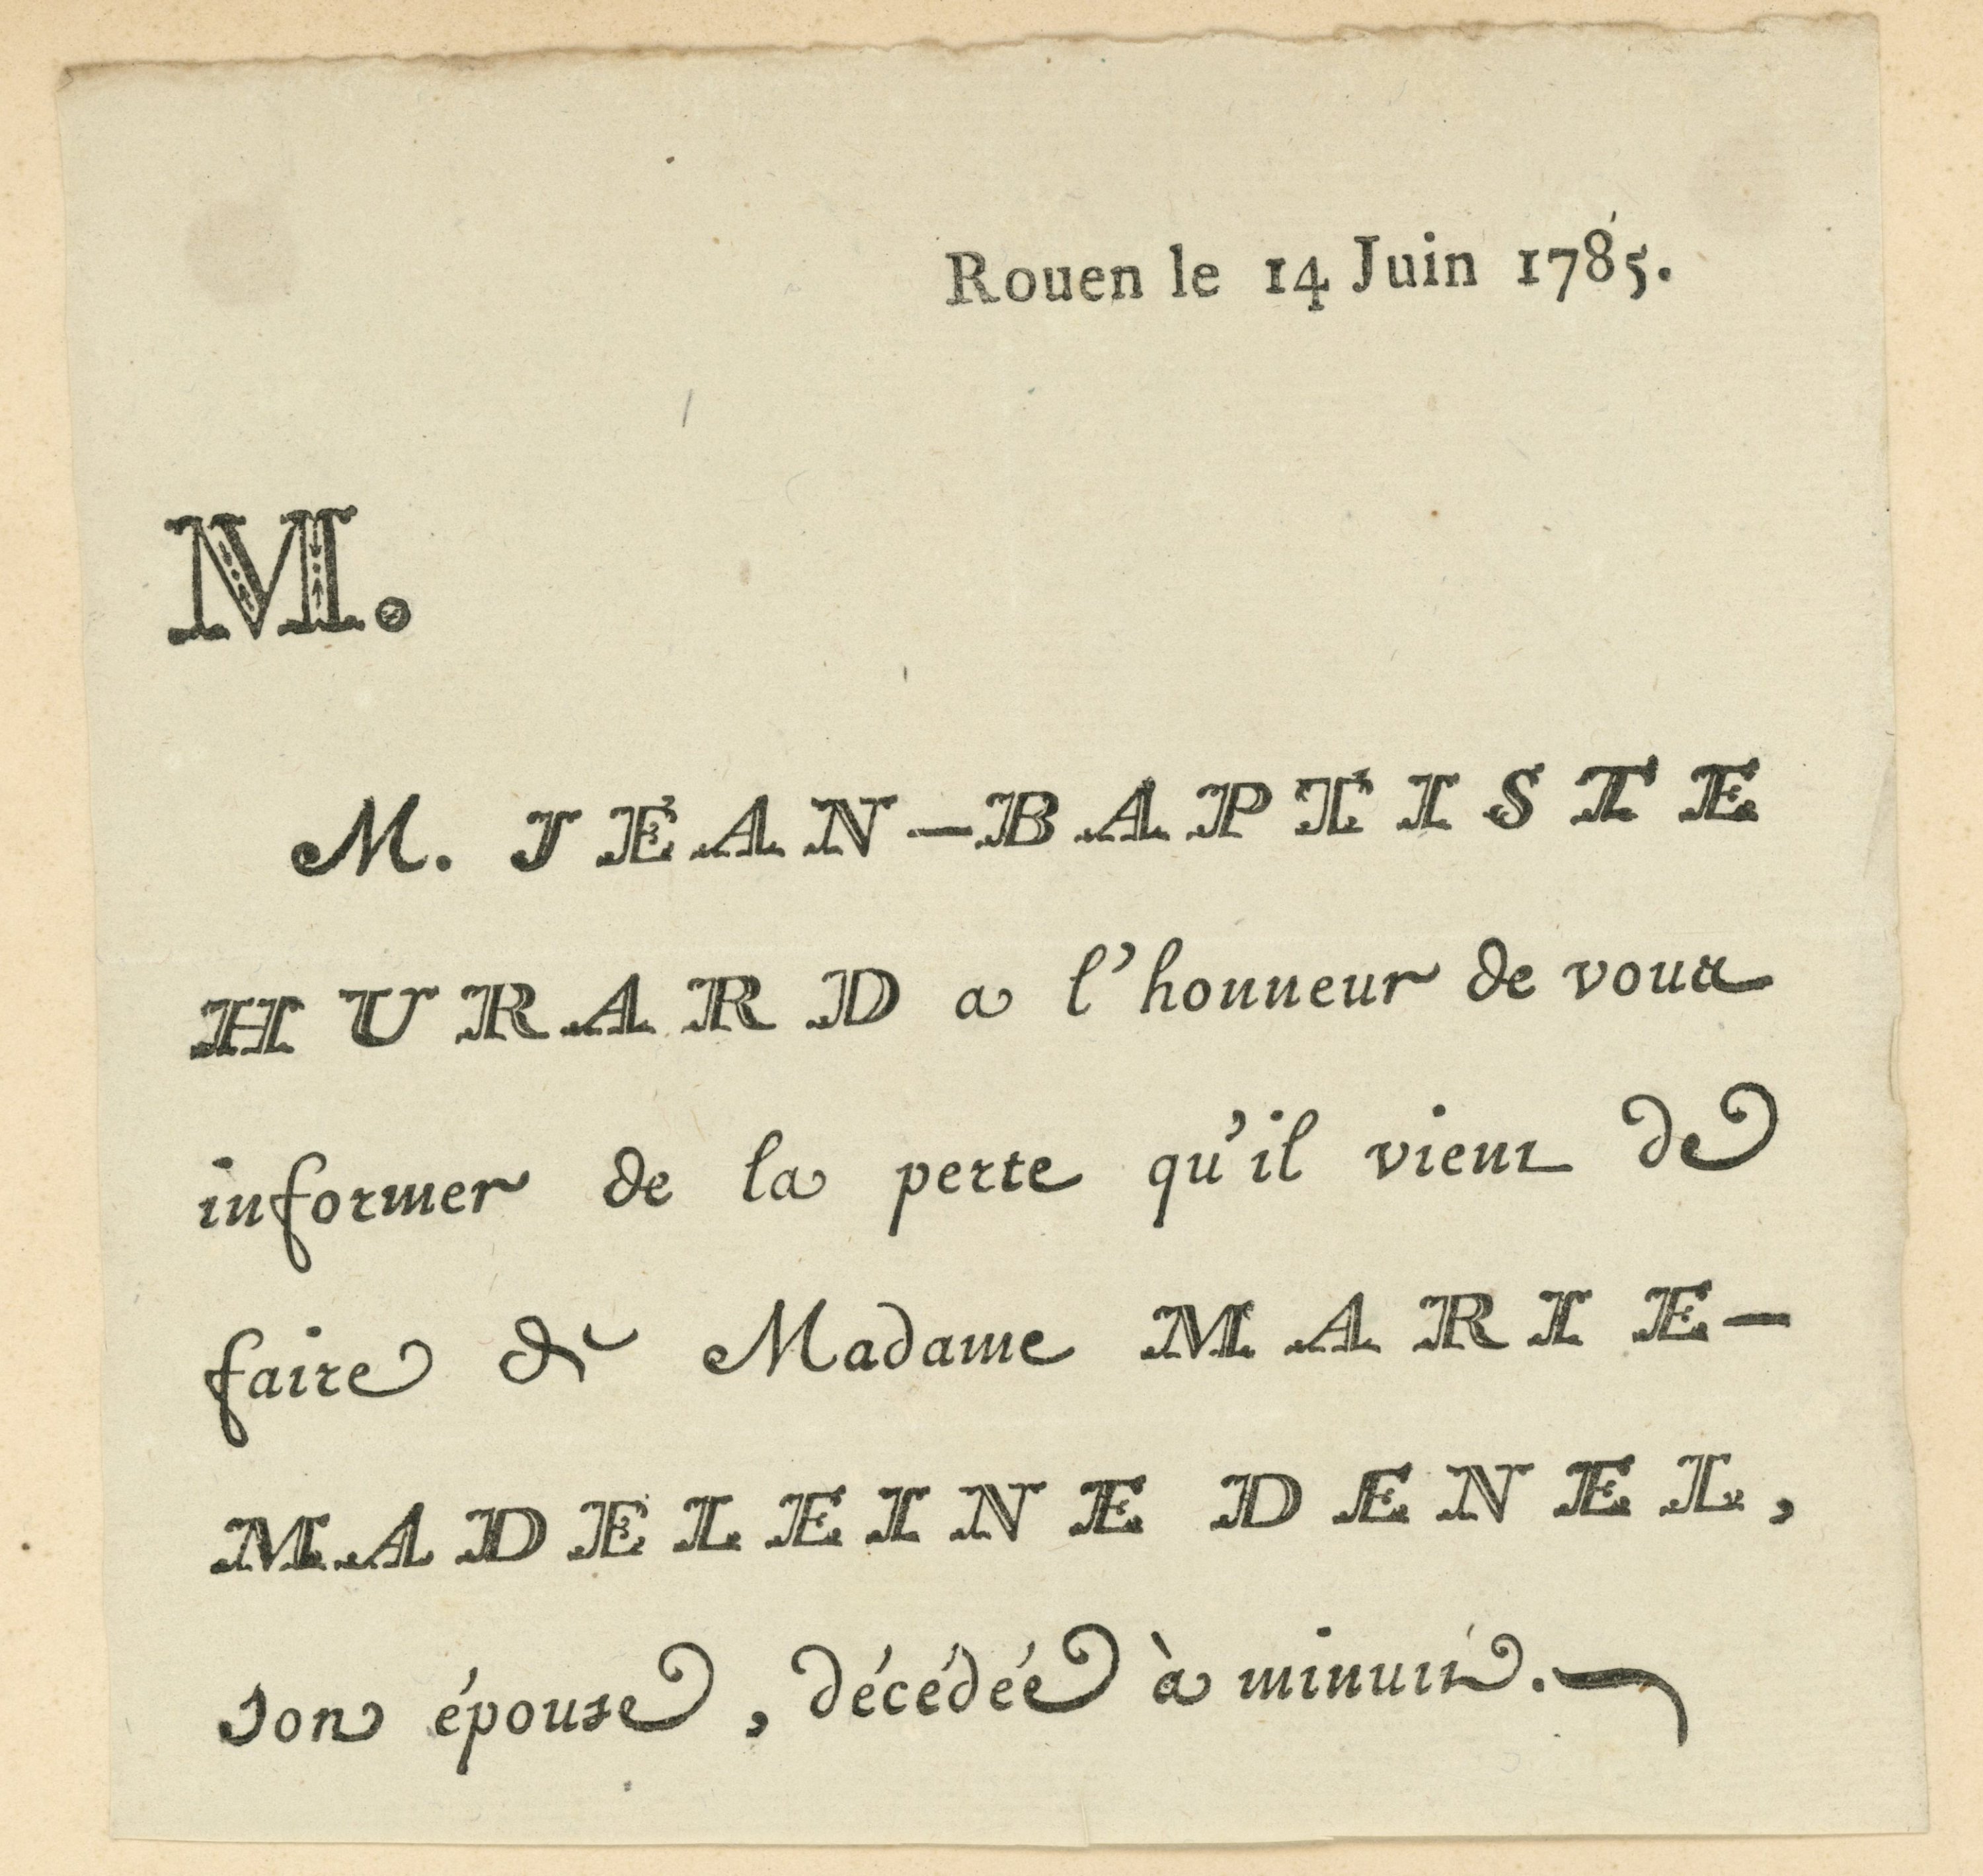 Rouen le 14 Juin 1785.
M.
M. JEAN-BAPTISTE
HURARD a l'honneur de vous
informer de la perte qu'il vient de
faire de Madame MARIE-
MADELEINE DENEL,
son épouse, décédée à minuit.